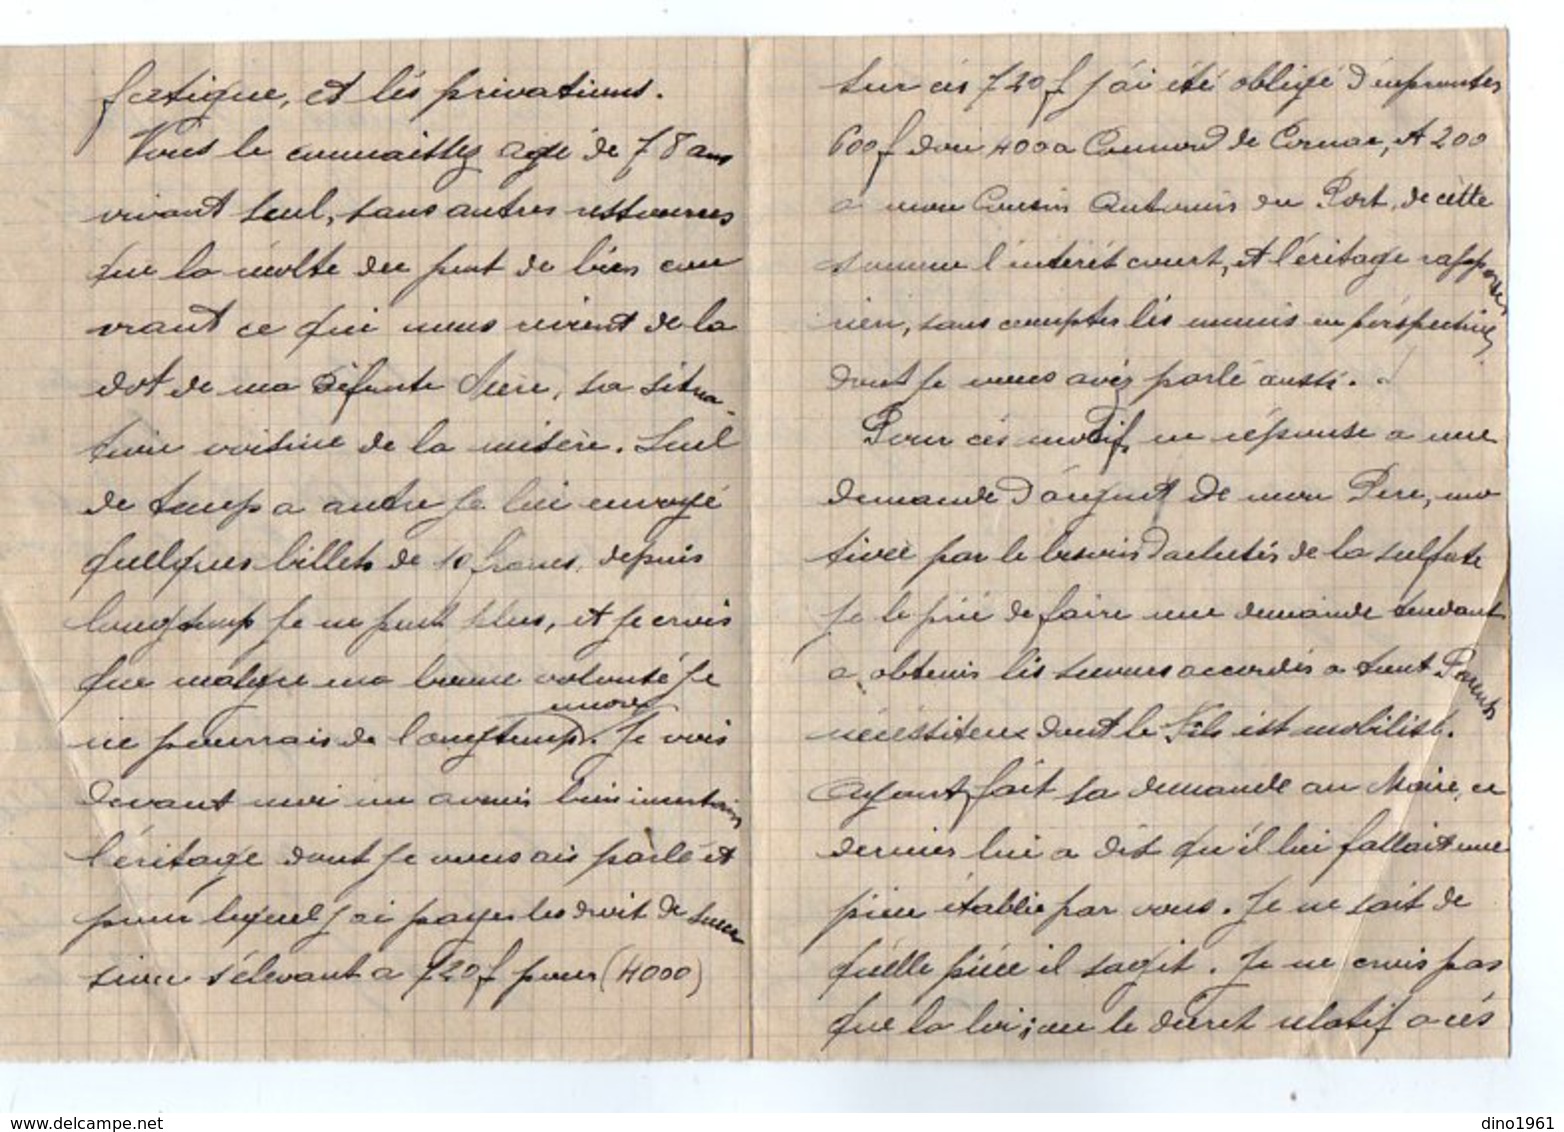 fatigue, et lés privations.
Vous le connaissez agé de 78 ans
vivant seul, sans autres ressources
que la récolte du peut de bien cou
vrant ce qui nous revient de la
dot de ma défunte Mère, sa situa-
tion voisine de la misère. Seul
de temp a autre je lui envoyé
quelques billets de 10 francs, depuis
longtemp je ne peut plus, et je crois
que malgre ma bonne volonté je
ne pourrais de longtemp encore. Je vois
devant moi un avenir bien incertain
l'éritage dont je vous ais parlé et
pour lequel j'ai payer les droit de succe
sion s'élevant a 720 f pour (4000)
Sur cés 720 f j'ai été obligé d'émprunter
600 f don 400 a de Cornac, et 200
a mon Cousin Antonin du Port, de cétte
somme l'intérét court, et l'éritage rapporte
rien, sans compter lés ennuis en pérspective
dont je vous avéz parlé aussi.
Pour cés motif, en réponse a une
demande d'argent de mon Pere, mo
tivée par le besoin d'acheter de la sulfate
je le prié de faire une demande tendant
a obtenir lés secours accordés a tout Parents
nécéssiteux dont le Fils est mobilisé.
Ayant fait sa demande au Maire, ce
dernier lui a dit qu'il lui fallait une
pièce établie par vous. Je ne sait de
quélle piéce il sagit. Je ne crois pas
que la loi; ou le décret relatif a cés
dino1961